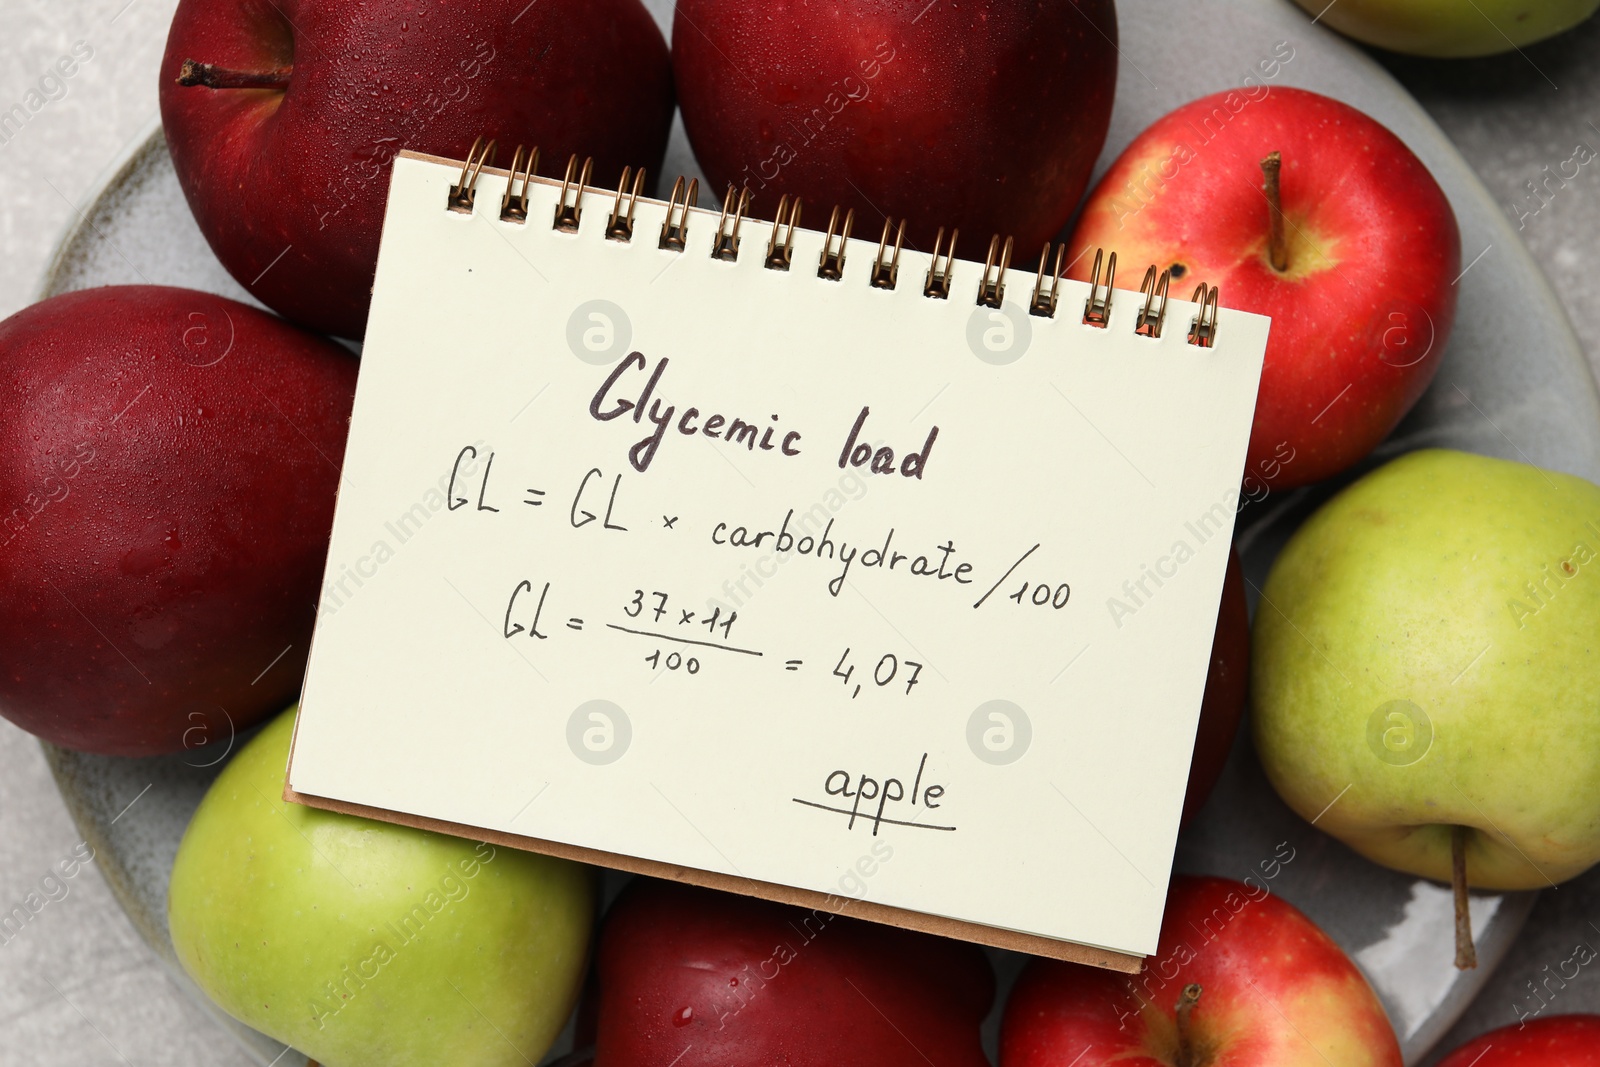 Glycemic load
GL = GL × carbohydrate/100
GL = 37×11/100 = 4,07
apple
Africa Images
a